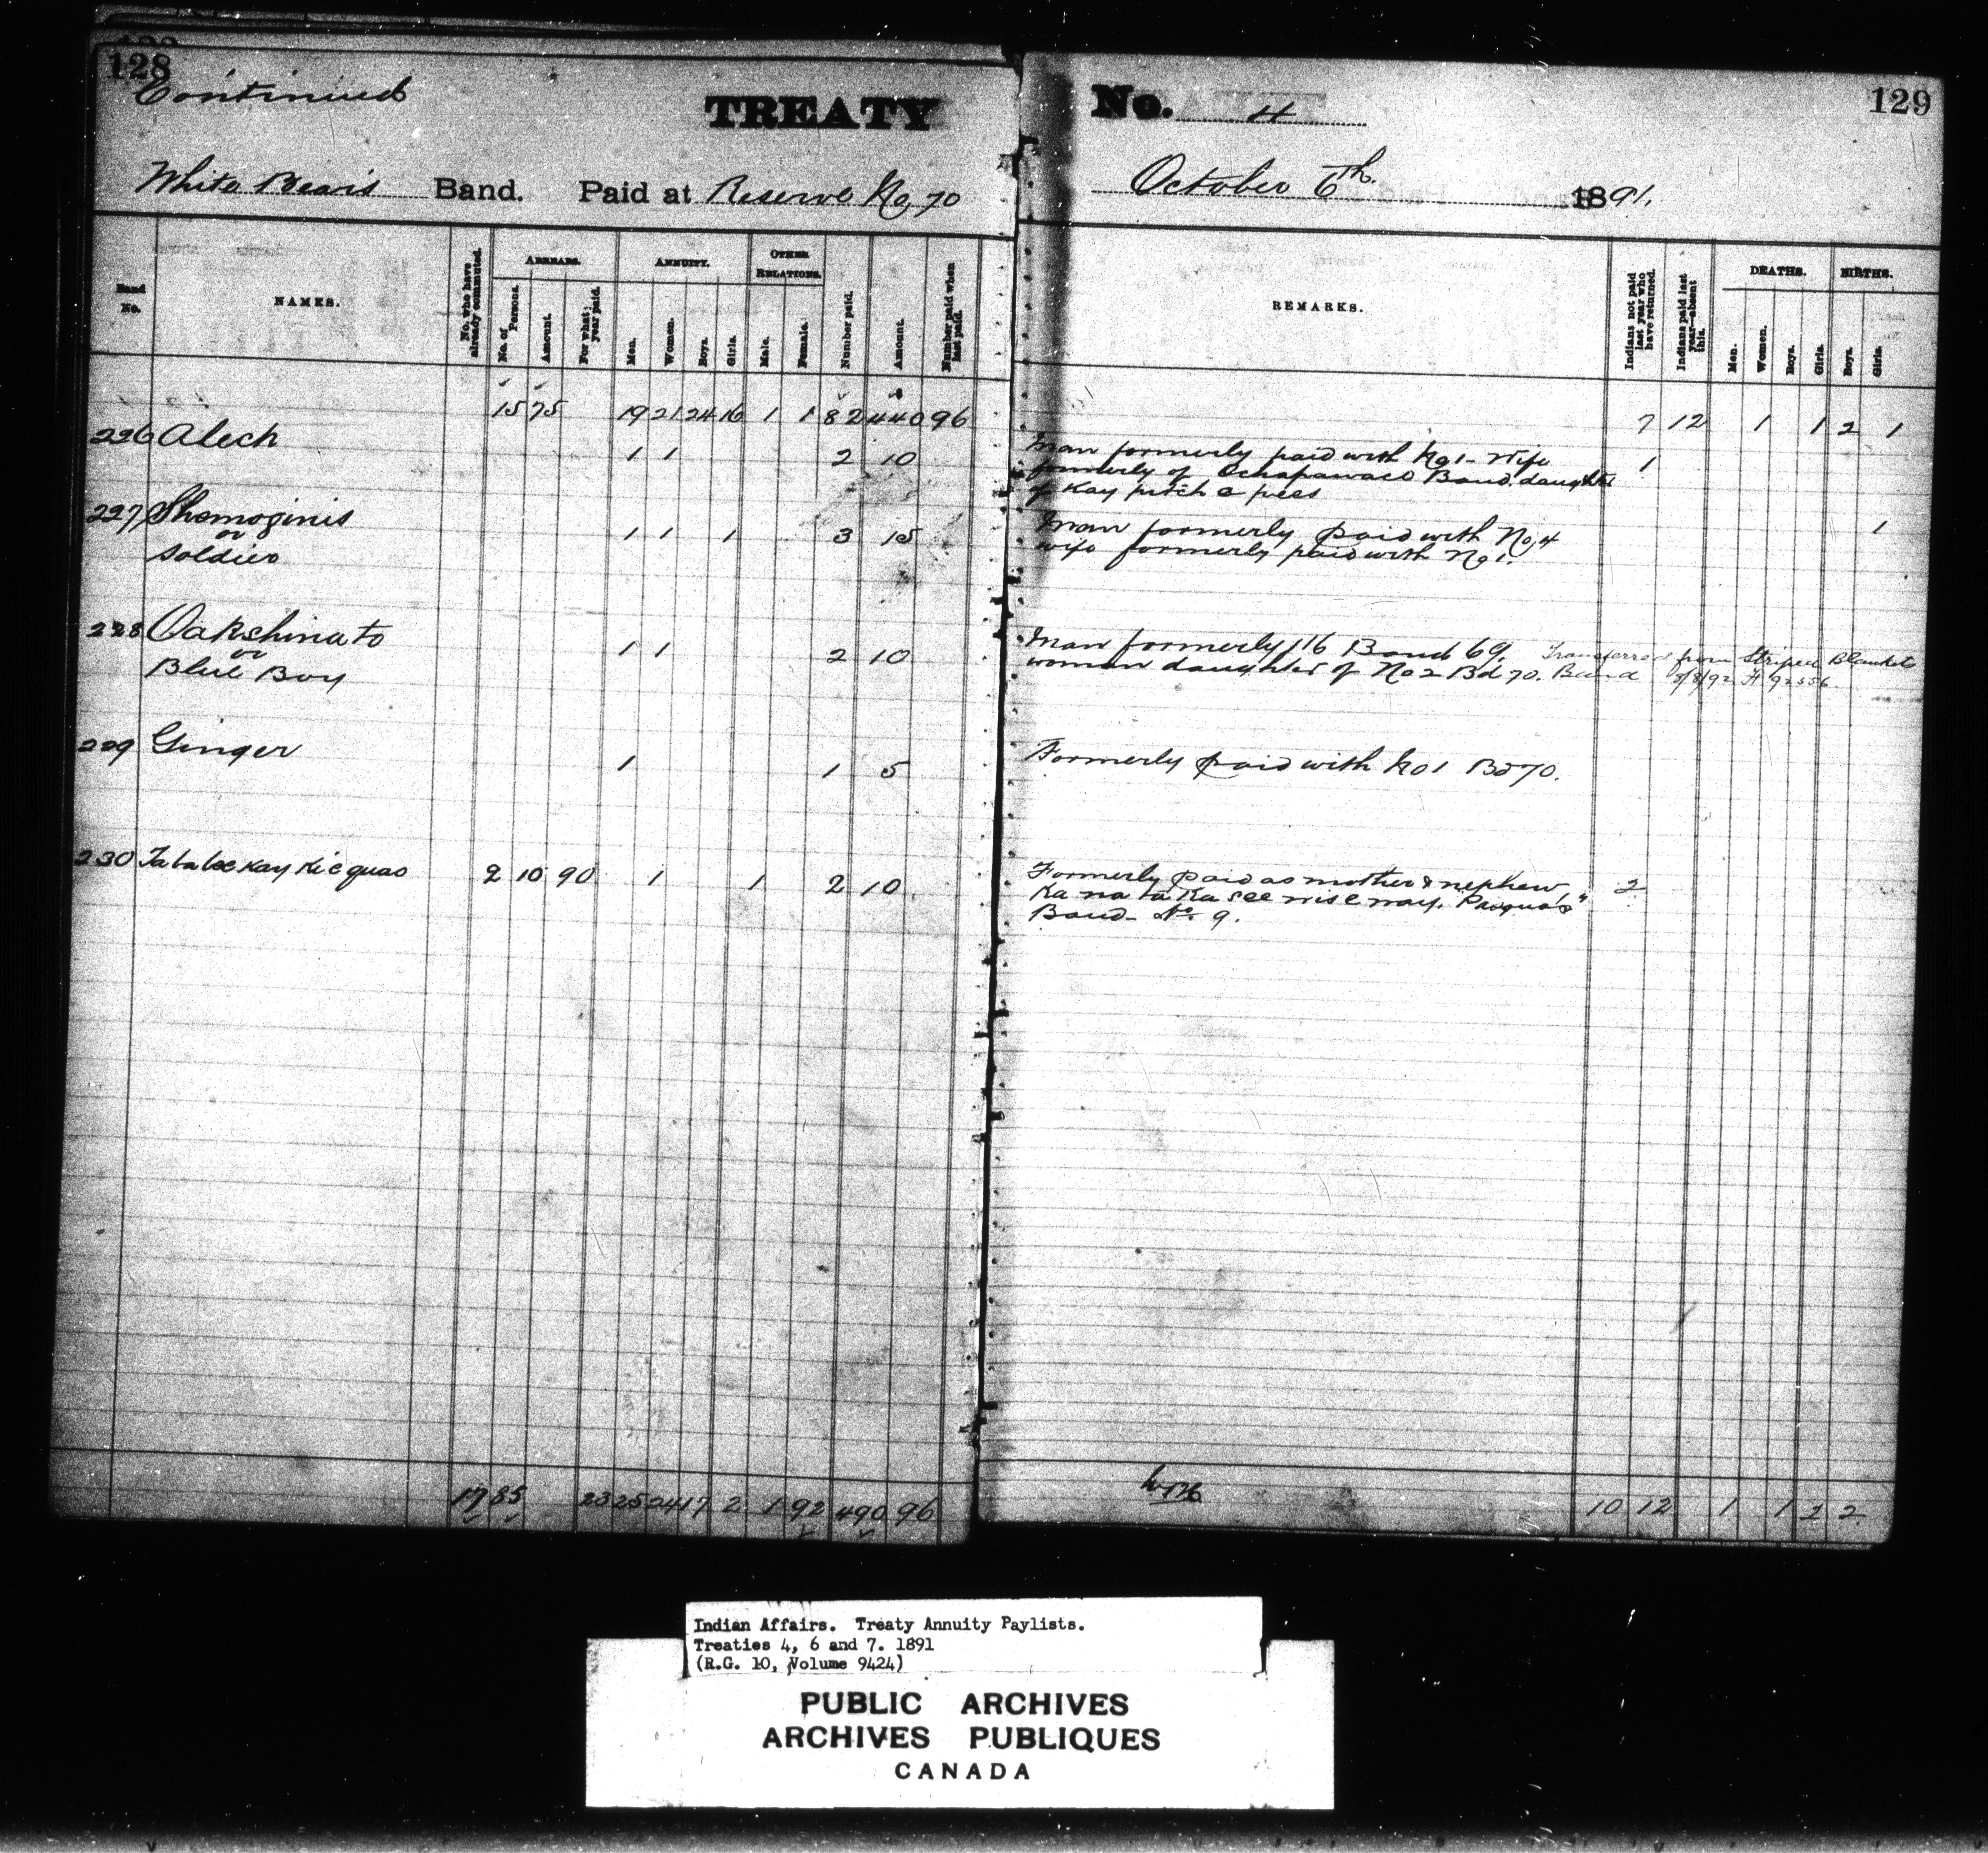 128
Continued
TREATY
White Bear's Band. Paid at Reserve No 70
Band No.
NAMES.
No. who have already commuted.
ARREARS.
No. of Persons.
Amount.
For what year paid.
ANNUITY.
Men.
Women.
Boys.
Girls.
OTHER RELATIONS.
Male.
Female.
Number paid.
Amount.
Number paid when last paid.
15 75 19 21 24 16 1 1 82 440 96
226 Alech 1 1 2 10
227 Shemoginis 1 1 1 3 15
or
Soldier
228 Oakshina to 1 1 2 10
or
Blue Boy
229 Ginger 1 1 5
230 Tatabeekay Kicquao 2 10 90 1 1 2 10
17 85 23 25 24 17 2 1 92 490 96
No. 4
129
October 6th. 1891.
REMARKS.
Indians not paid last year who have returned.
Indians paid last year—absent this.
DEATHS.
Men.
Women.
Boys.
Girls.
BIRTHS.
Boys.
Girls.
7 12 1 1 2 1
Man formerly paid with No 1 - wife 1
formerly of Ochapawace Band. daughter
of Kay pitch e pees
Man formerly paid with No 4 1
wife formerly paid with No 1.
Man formerly 116 Band 69. Transferred from Striped Blanket
woman daughter of No 2 Bd 70. Band 8/8/92 H 92556.
Formerly paid with No 1 Bd 70.
Formerly paid as mother & nephew, 2
Ka na ta Ka see wise way. Pasqua's"
Band - No 9.
10 12 1 1 2 2
Indian Affairs. Treaty Annuity Paylists.
Treaties 4, 6 and 7. 1891
(R.G. 10, Volume 9424)
PUBLIC ARCHIVES
ARCHIVES PUBLIQUES
CANADA